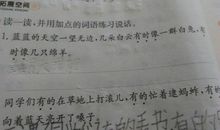 拓展空间
读一读,并用加点的词语练习说话。
1. 蓝蓝的天空一望无边,几朵白云有时像一群白兔,有
时像几只绵羊。
同学们有的在草地上打滚儿,有的忙着逮蚂蚱,有的
向着蓝天亮开了嗓子。